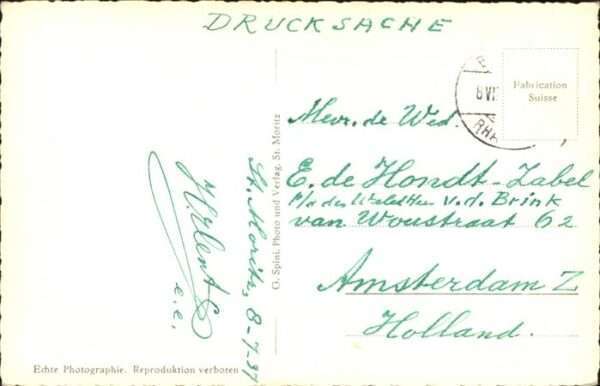 DRUCKSACHE
Fabrication
Suisse
8 VII
RH
Mevr. de Wed.
E. de Hondt-Zabel
p/a den v.d. Brink
van Woustraat 62
Amsterdam Z
Holland.
G. Spini, Photo und Verlag, St. Moritz
St. Moritz, 8-7-37
e.e.
Echte Photographie. Reproduktion verboten